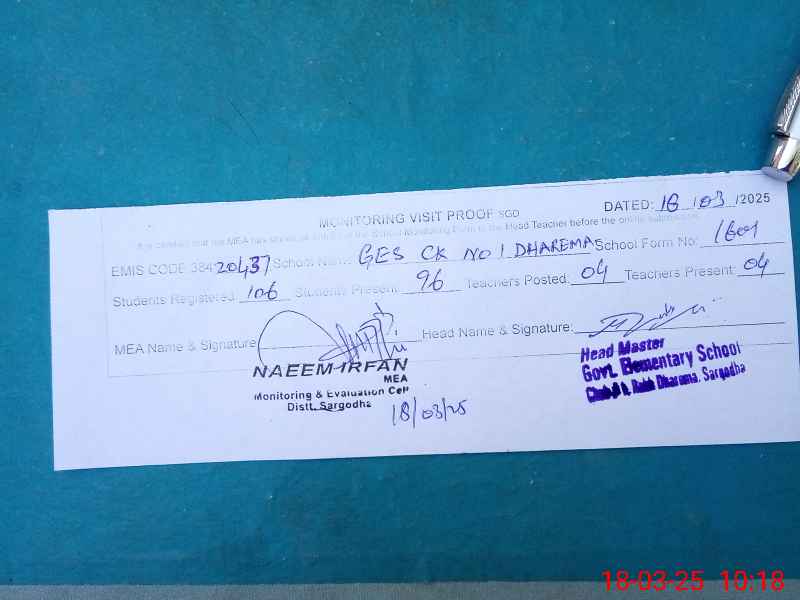 MONITORING VISIT PROOF SGD
DATED: 18/03/2025
It is certified that the MEA has shown all entries of the School Monitoring Form to the Head Teacher before the online submission
EMIS CODE 38420437 School Name GES CK NO 1 DHAREMA School Form No: 1601
Students Registered 106 Students Present 96 Teachers Posted: 04 Teachers Present: 04
MEA Name & Signature Head Name & Signature:
NAEEM IRFAN
MEA
Monitoring & Evaluation Cell
Distt. Sargodha
18/03/25
Head Master
Govt. Elementary School
Dharema, Sargodha
18-03-25 10:18